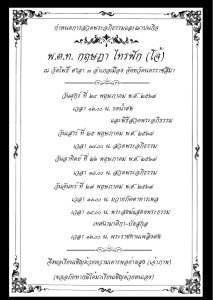 กำหนดการสวดพระอภิธรรมและฌาปนกิจ
พ.ต.ท. กฤษฎา ไทรฟัก (โจ้)
ณ วัดโพธิ์ ศาลา ๓ อำเภอเมือง จังหวัดนครราชสีมา
วันศุกร์ ที่ ๒๔ พฤษภาคม พ.ศ. ๒๕๖๗
เวลา ๑๖.๐๐ น. รดน้ำศพ
และพิธีสวดพระอภิธรรม
วันเสาร์ ที่ ๒๕ พฤษภาคม พ.ศ. ๒๕๖๗
เวลา ๑๘.๐๐ น. สวดพระอภิธรรม
วันอาทิตย์ ที่ ๒๖ พฤษภาคม พ.ศ. ๒๕๖๗
เวลา ๑๘.๐๐ น. สวดพระอภิธรรม
วันจันทร์ ที่ ๒๗ พฤษภาคม พ.ศ. ๒๕๖๗
เวลา ๑๑.๐๐ น. ถวายภัตตาหารเพล
เวลา น. พระสงฆ์แสดงพระธรรม
เทศนามาติกา-บังสุกุล
เวลา ๑๖.๐๐ น. พระราชทานเพลิงศพ
จึงขอเรียนเชิญด้วยความเคารพอย่างสูง (เจ้าภาพ)
(ขออภัยหากมิได้มาเรียนเชิญด้วยตนเอง)